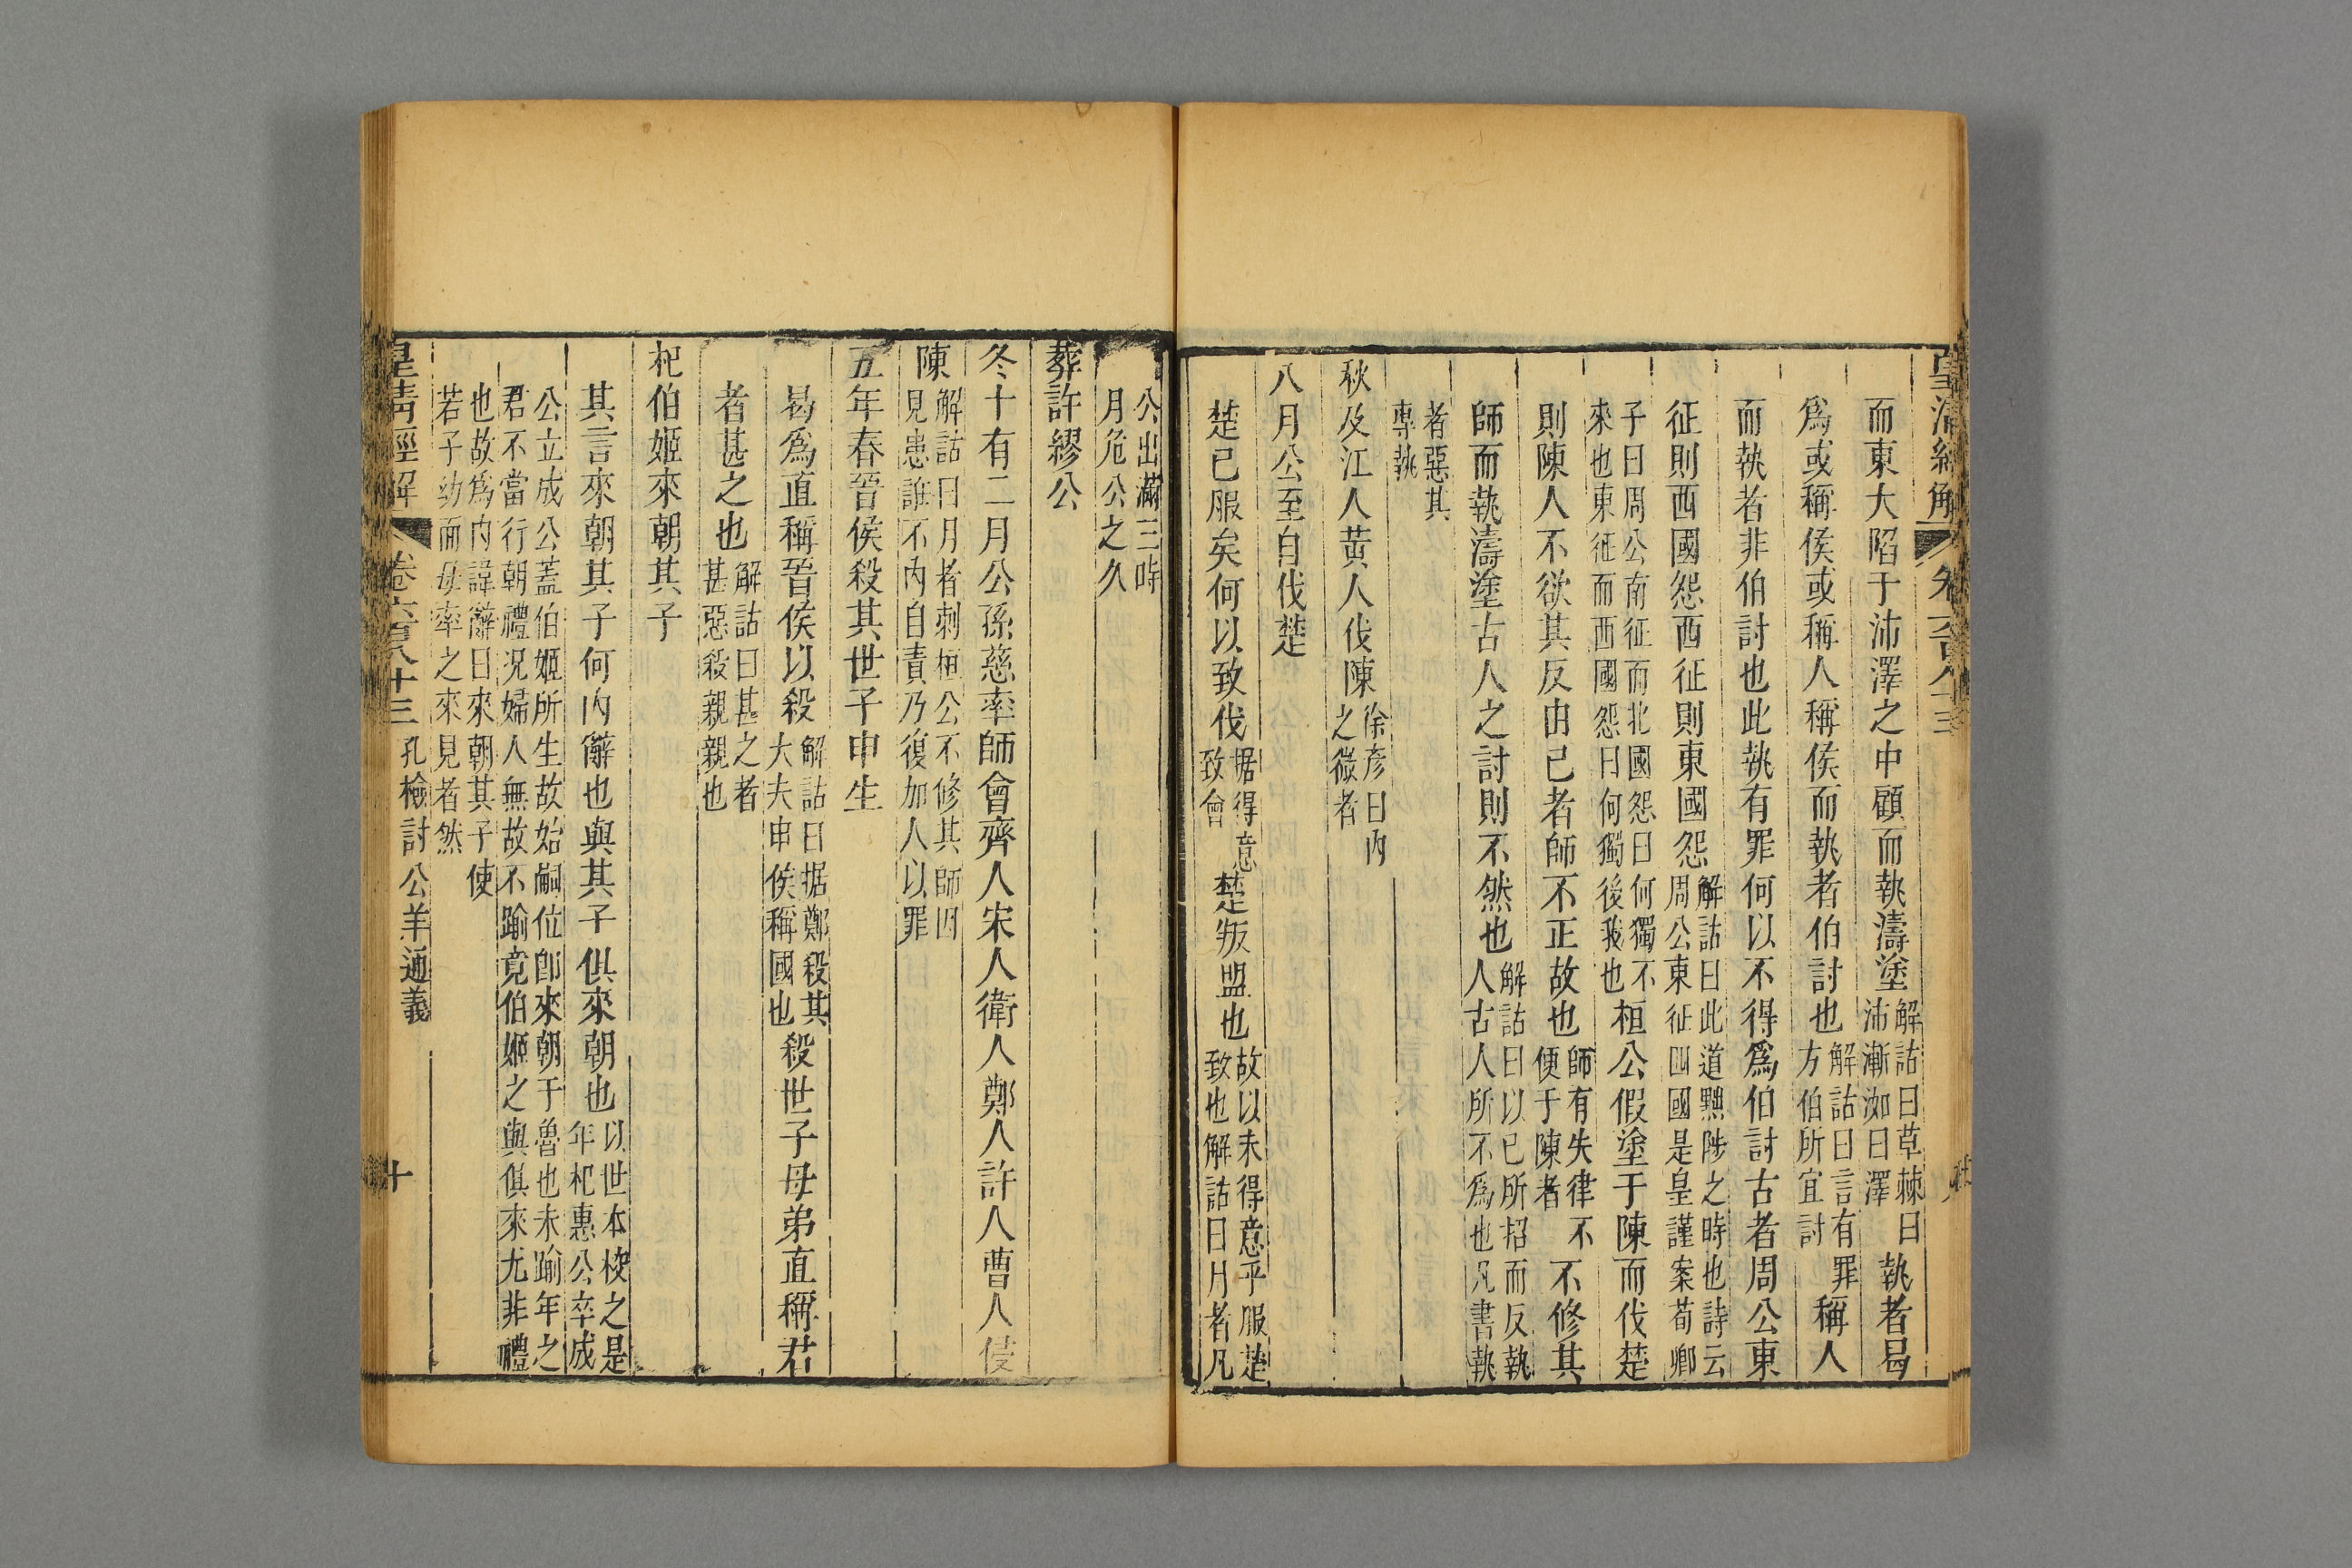 皇清經解 卷六百八十三
而東大陷于沛澤之中顧而執濤塗解詁曰草棘曰沛漸洳曰澤執者曷
爲或稱侯或稱人稱侯而執者伯討也解詁曰言有罪方伯所宜討稱人
而執者非伯討也此執有罪何以不得爲伯討古者周公東
征則西國怨西征則東國怨解詁曰此道黜陟之時也詩云周公東征四國是皇謹案荀卿
子曰周公南征而北國怨曰何獨不來也東征而西國怨曰何獨後我也桓公假塗于陳而伐楚
則陳人不欲其反由己者師不正故也師有失律不便于陳者不修其
師而執濤塗古人之討則不然也解詁曰以己所招而反執人古人所不爲也凡書執
者惡其專執
秋及江人黃人伐陳徐彥曰內之微者
八月公至自伐楚
楚已服矣何以致伐据得意致會楚叛盟也故以未得意乎服楚致也解詁曰月者凡
公出滿三時月危公之久
葬許繆公
冬十有二月公孫慈率師會齊人宋人衛人鄭人許人曹人侵
陳解詁曰月者刺桓公不修其師因見患誰不內自責乃復加人以罪
五年春晉侯殺其世子申生
曷爲直稱晉侯以殺解詁曰据鄭殺其大夫申侯稱國也殺世子母弟直稱君
者甚之也解詁曰甚之者甚惡殺親親也
杞伯姬來朝其子
其言來朝其子何內辭也與其子俱來朝也以世本校之是年杞惠公卒成
公立成公蓋伯姬所生故始嗣位即來朝于魯也未踰年之君不當行朝禮況婦人無故不踰竟伯姬之與俱來尤非禮
也故爲內諱辭曰來朝其子使若子幼而母率之來見者然
皇清經解 卷六百八十三 孔檢討公羊通義 十